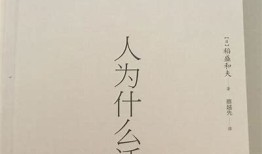 [日] 稻盛和夫 著
人为什么活